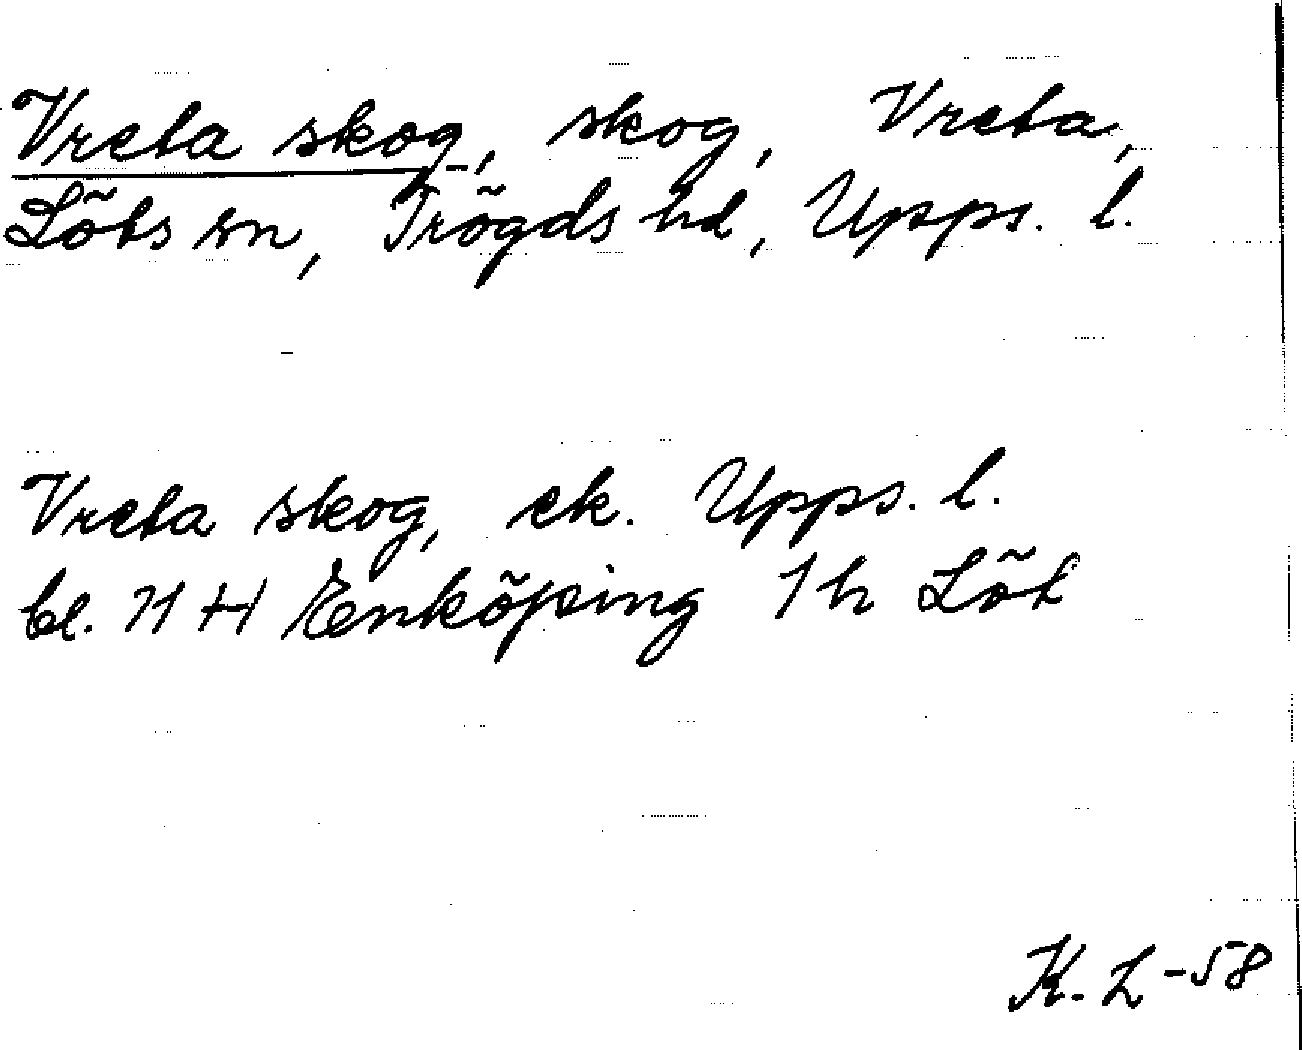 Vreta skog, skog, Vreta,
Löts sn, Trögds hd, Upps. l.
Vreta skog, ek. Upps. l.
bl. 71 H Enköping 1 h Löt
K. L -58